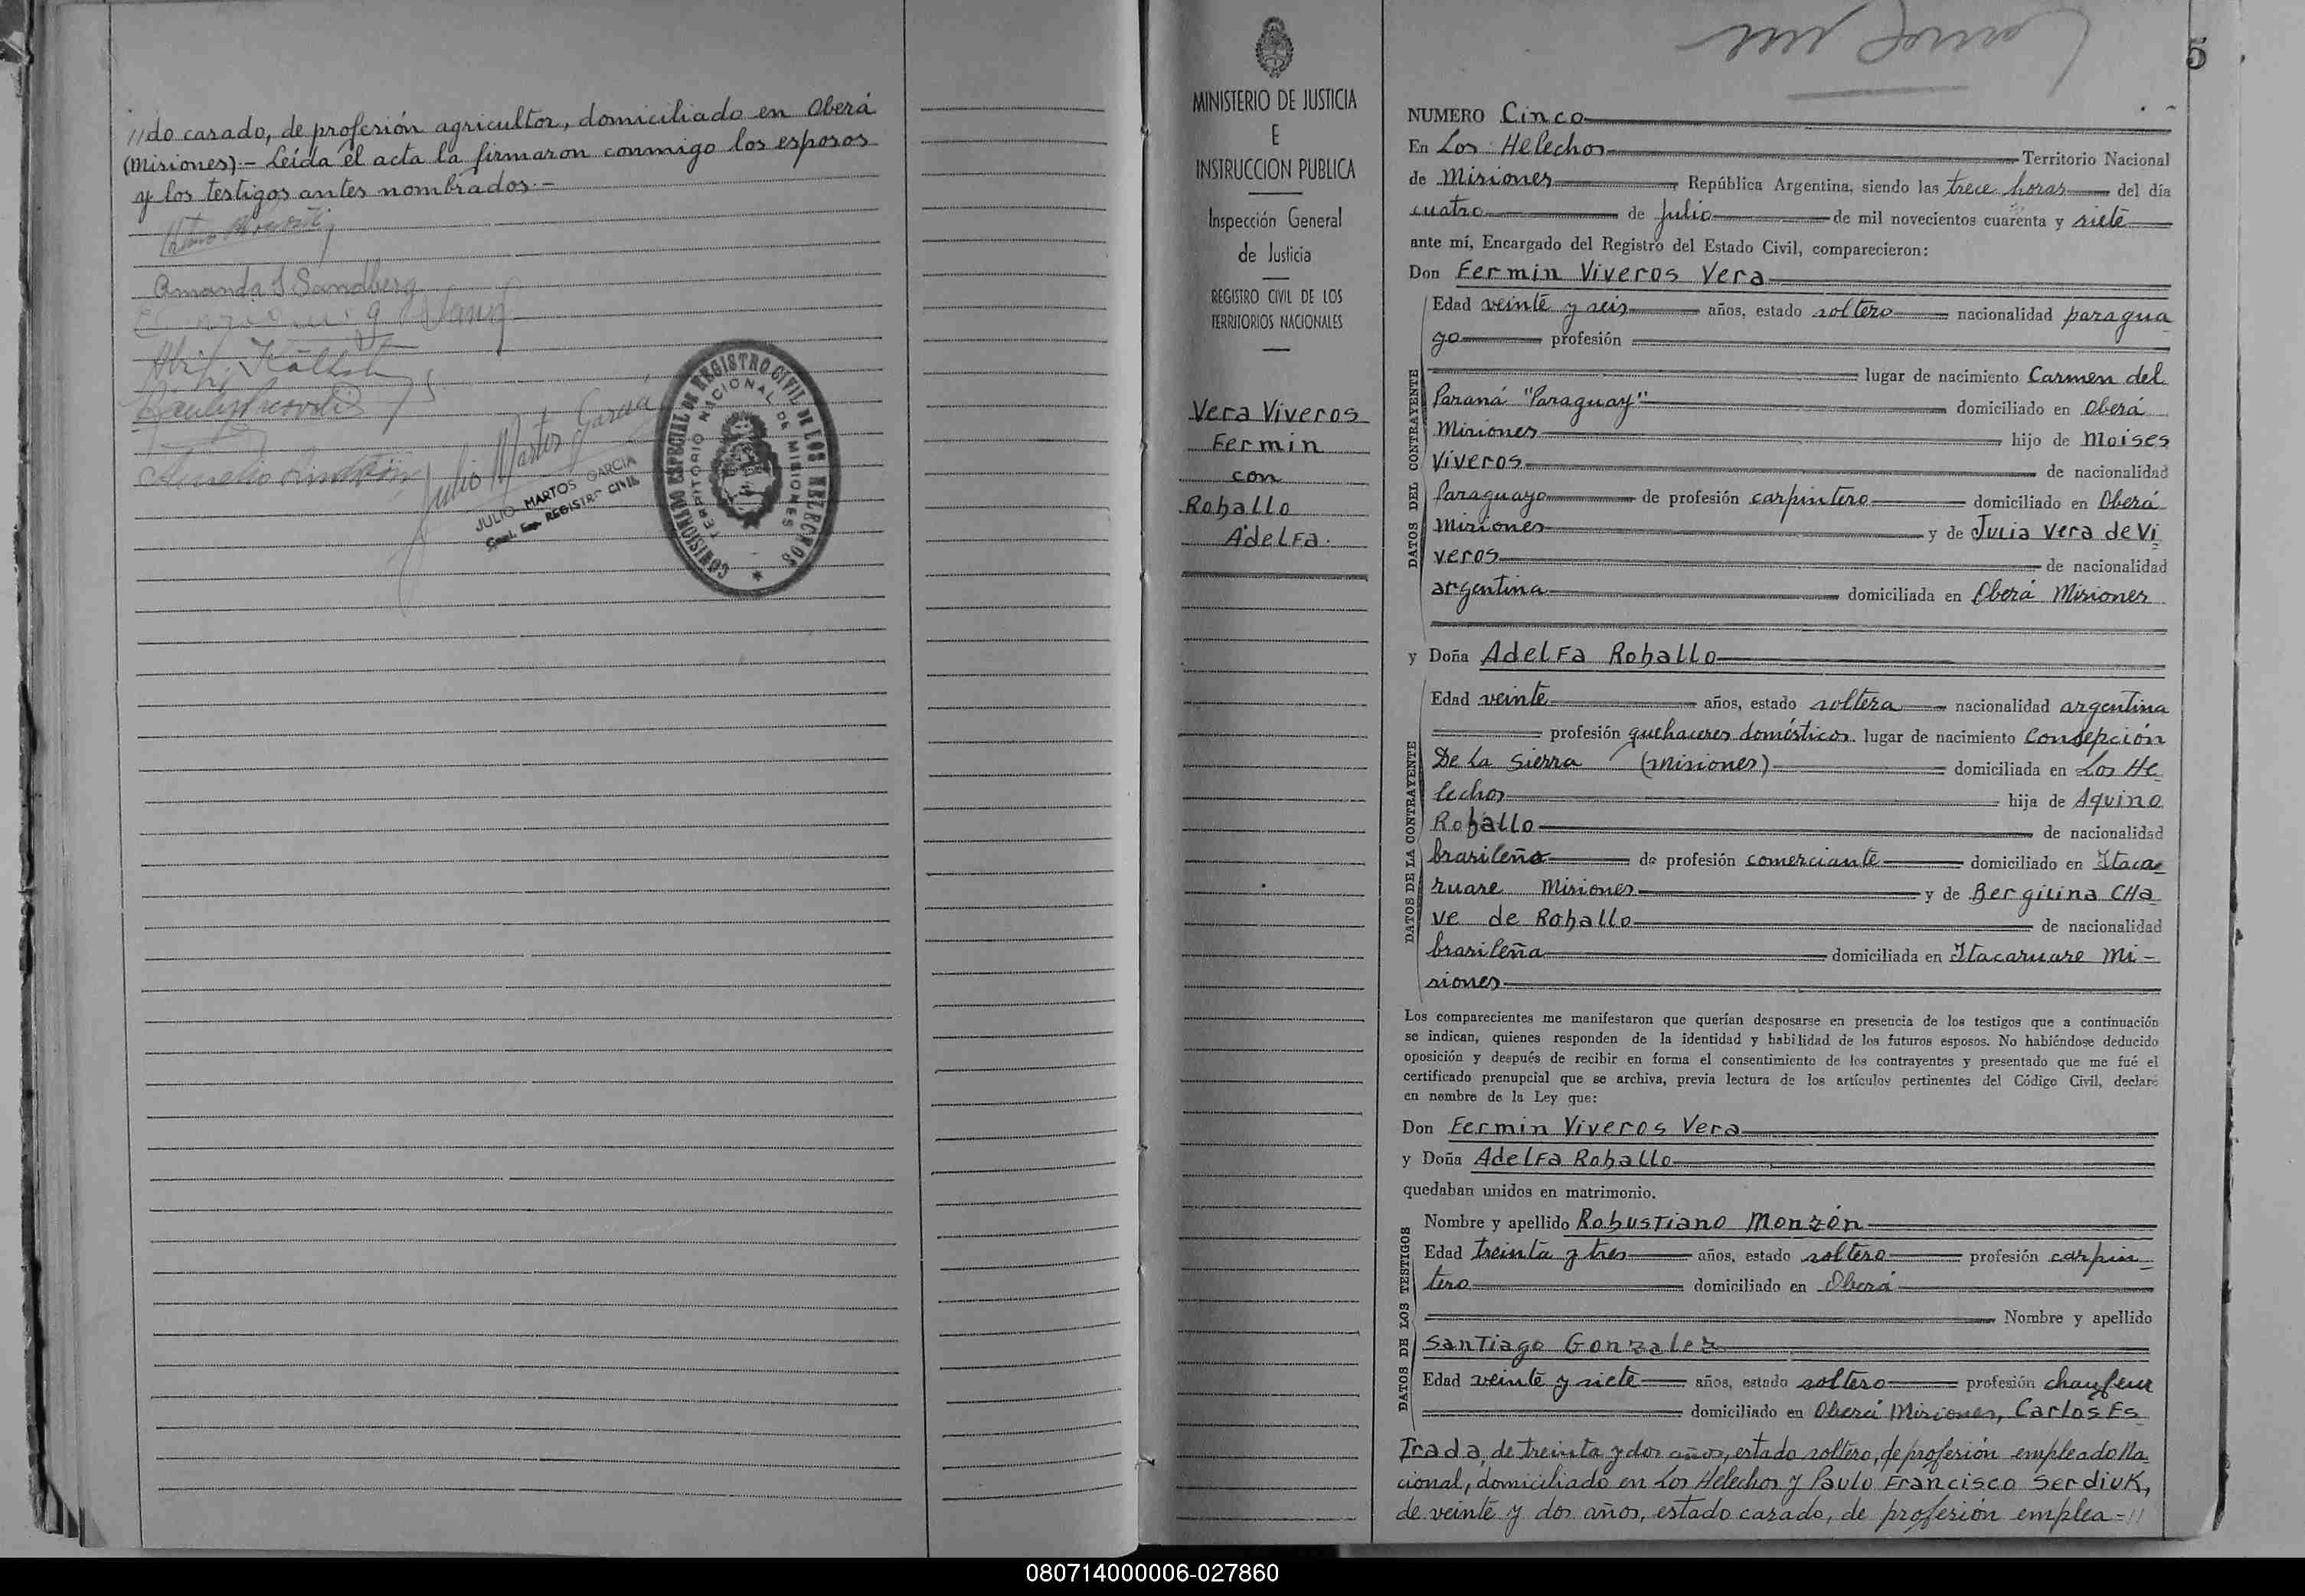 //do casado, de profesión agricultor, domiciliado en Oberá
(Misiones).- Leída el acta la firmaron conmigo los esposos
y los testigos antes nombrados.-
Amanda S Sandberg
Julio Martos García
JULIO MARTOS GARCIA
REGISTRO CIVIL
COMISIONADO ESPECIAL DE REGISTRO CIVIL DE LOS HELECHOS
TERRITORIO NACIONAL DE MISIONES
MINISTERIO DE JUSTICIA
E
INSTRUCCION PUBLICA
Inspección General
de Justicia
REGISTRO CIVIL DE LOS
TERRITORIOS NACIONALES
Vera Viveros
Fermin
con
Roballo
Adelfa.
5
NUMERO Cinco
En Los Helechos Territorio Nacional
de Misiones, República Argentina, siendo las trece horas del día
cuatro de Julio de mil novecientos cuarenta y siete
ante mí, Encargado del Registro del Estado Civil, comparecieron:
Don Fermin Viveros Vera
DATOS DEL CONTRAYENTE
Edad veinte y seis años, estado soltero nacionalidad paragua
yo profesión
lugar de nacimiento Carmen del
Paraná "Paraguay" domiciliado en Oberá
Misiones hijo de Moises
Viveros de nacionalidad
Paraguayo de profesión carpintero domiciliado en Oberá
Misiones y de Julia Vera de Vi
veros de nacionalidad
argentina domiciliada en Oberá Misiones
y Doña Adelfa Roballo
DATOS DE LA CONTRAYENTE
Edad veinte años, estado soltera nacionalidad argentina
profesión quehaceres domésticos lugar de nacimiento Consepción
De La Sierra (Misiones) domiciliada en Los He
lechos hija de Aquino
Roballo de nacionalidad
brasileña de profesión comerciante domiciliado en Itaca
ruare Misiones y de Bergilina Cha
ve de Roballo de nacionalidad
brasileña domiciliada en Itacaruare Mi-
siones
Los comparecientes me manifestaron que querían desposarse en presencia de los testigos que a continuación
se indican, quienes responden de la identidad y habilidad de los futuros esposos. No habiéndose deducido
oposición y después de recibir en forma el consentimiento de los contrayentes y presentado que me fué el
certificado prenupcial que se archiva, previa lectura de los artículos pertinentes del Código Civil, declaré
en nombre de la Ley que:
Don Fermin Viveros Vera
y Doña Adelfa Roballo
quedaban unidos en matrimonio.
DATOS DE LOS TESTIGOS
Nombre y apellido Robustiano Monzón
Edad treinta y tres años, estado soltero profesión carpin
tero domiciliado en Oberá
Nombre y apellido
Santiago Gonzalez
Edad veinte y siete años, estado soltero profesión chaufeur
domiciliado en Oberá Misiones, Carlos Es
trada, de treinta y dos años, estado soltero, de profesión empleado Na
cional, domiciliado en Los Helechos y Paulo Francisco Serdiuk,
de veinte y dos años, estado casado, de profesión emplea-//
080714000006-027860